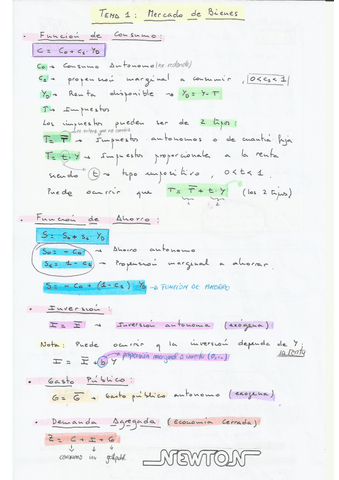 TEMA 1: Mercado de Bienes
• Función de Consumo:
C = C₀ + c₁ · Y_D
C₀ → Consumo Autónomo (no depende)
c₁ → propensión marginal a consumir, 0 < c₁ < 1
Y_D → Renta disponible → Y_D = Y - T
T → Impuestos
Los impuestos pueden ser de 2 tipos:
T = T̄ → Impuestos autónomos o de cuantía fija
T = t · Y → Impuestos proporcional a la renta
siendo t → tipo impositivo, 0 < t < 1.
Puede ocurrir que T = T̄ + t · Y (los 2 tipos)
• Función de Ahorro:
S = S₀ + s₁ · Y_D
S₀ = - C₀ → Ahorro autónomo
s₁ = 1 - c₁ → Propensión marginal a ahorrar.
S = - C₀ + (1 - c₁) Y_D → FUNCIÓN DE AHORRO
• Inversión:
I = Ī → Inversión autónoma (exógena)
Nota: Puede ocurrir q la inversión dependa de Y;
la renta
I = Ī + b Y propensión marginal a invertir
• Gasto Público:
G = Ḡ → Gasto público autónomo (exógena)
• Demanda Agregada (economía cerrada)
Z = C + I + G
consumo inv
NEWTON